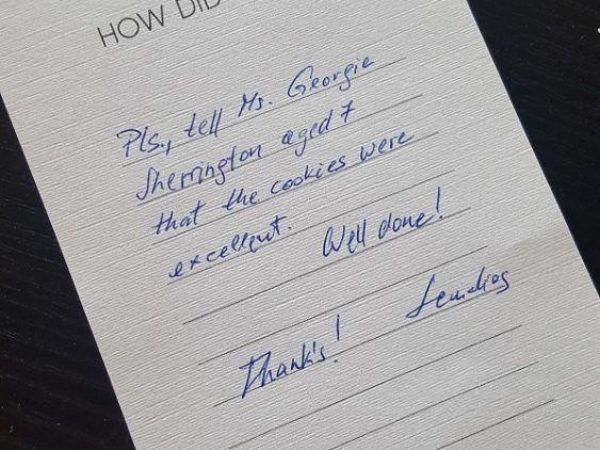 HOW DID
Pls., tell Ms. Georgie
Sherrington aged 7
that the cookies were
excellent. Well done!
Thanks!